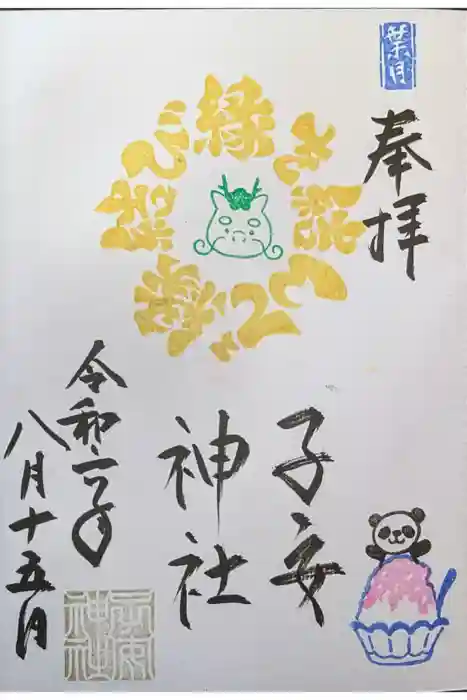 葉月
奉拝
縁
子安
神社
令和六年
八月十五日
子安
神社